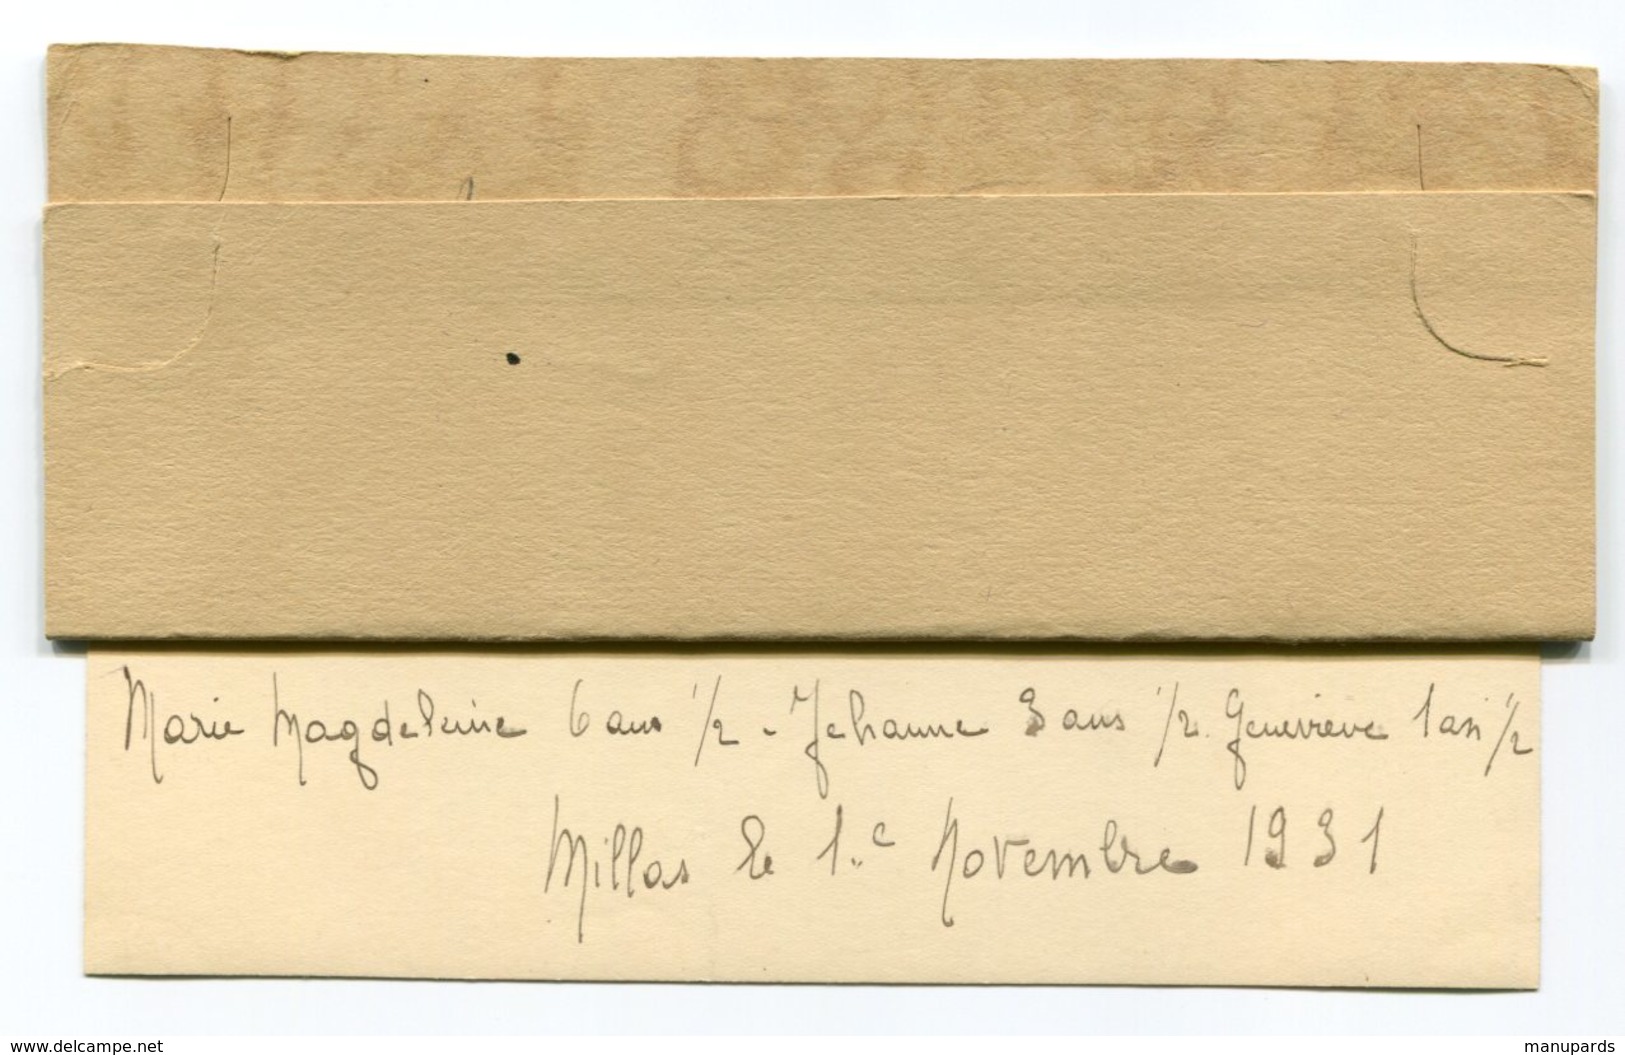 Marie Magdeleine 6 ans 1/2 - Jehanne 3 ans 1/2. Genevieve 1 an 1/2
Millas le 1.e Novembre 1931
www.delcampe.net
manupards